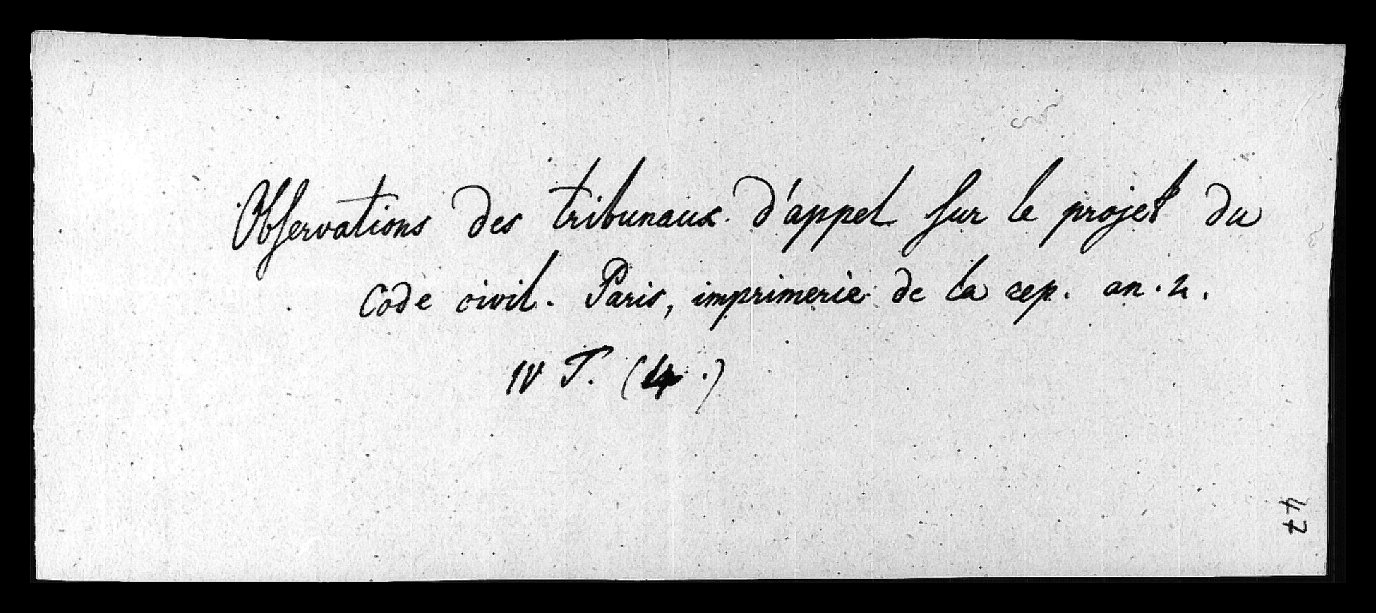 Observations des tribunaux d'appel sur le projet du
Code civil. Paris, imprimerie de la rep. an. 2.
IV T. (4.)
47